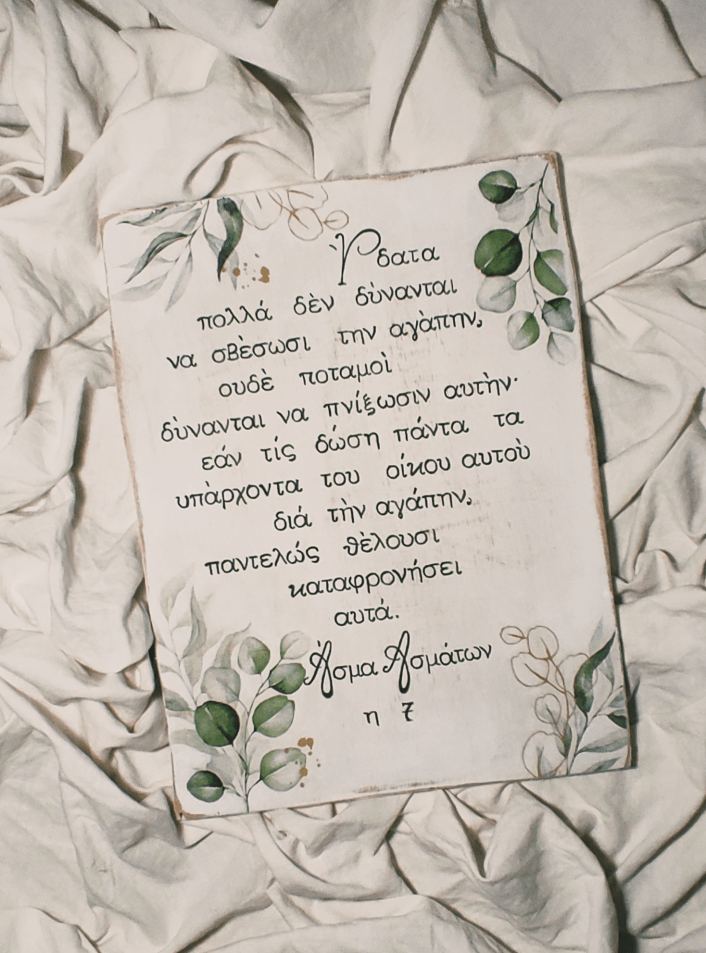 Ὑδατα
πολλά δὲν δὺνανται
να σβὲσωσι την αγὰπην,
ουδὲ ποταμοὶ
δὺνανται να πνίξωσιν αυτὴν·
εάν τίς δώση πάντα τα
υπὰρχοντα του οίκου αυτοὺ
διά τὴν αγάπην,
παντελώς θὲλουσι
καταφρονήσει
αυτά.
Ἀσμα Ασμάτων
η 7